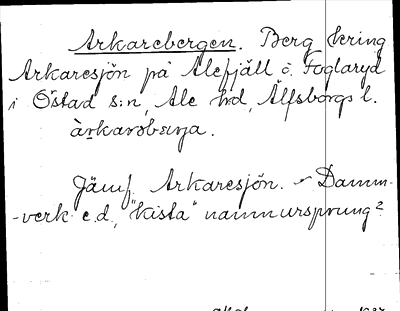 Arkarebergen. Berg kring
Arkaresjön på Alefjäll ö. Foglaryd
i Östad s:n, Ale hd, Älfsborgs l.
àrkarobærja.
Jämf. Arkaresjön. - Damm-
-verk e.d., "Kista" namnursprung?